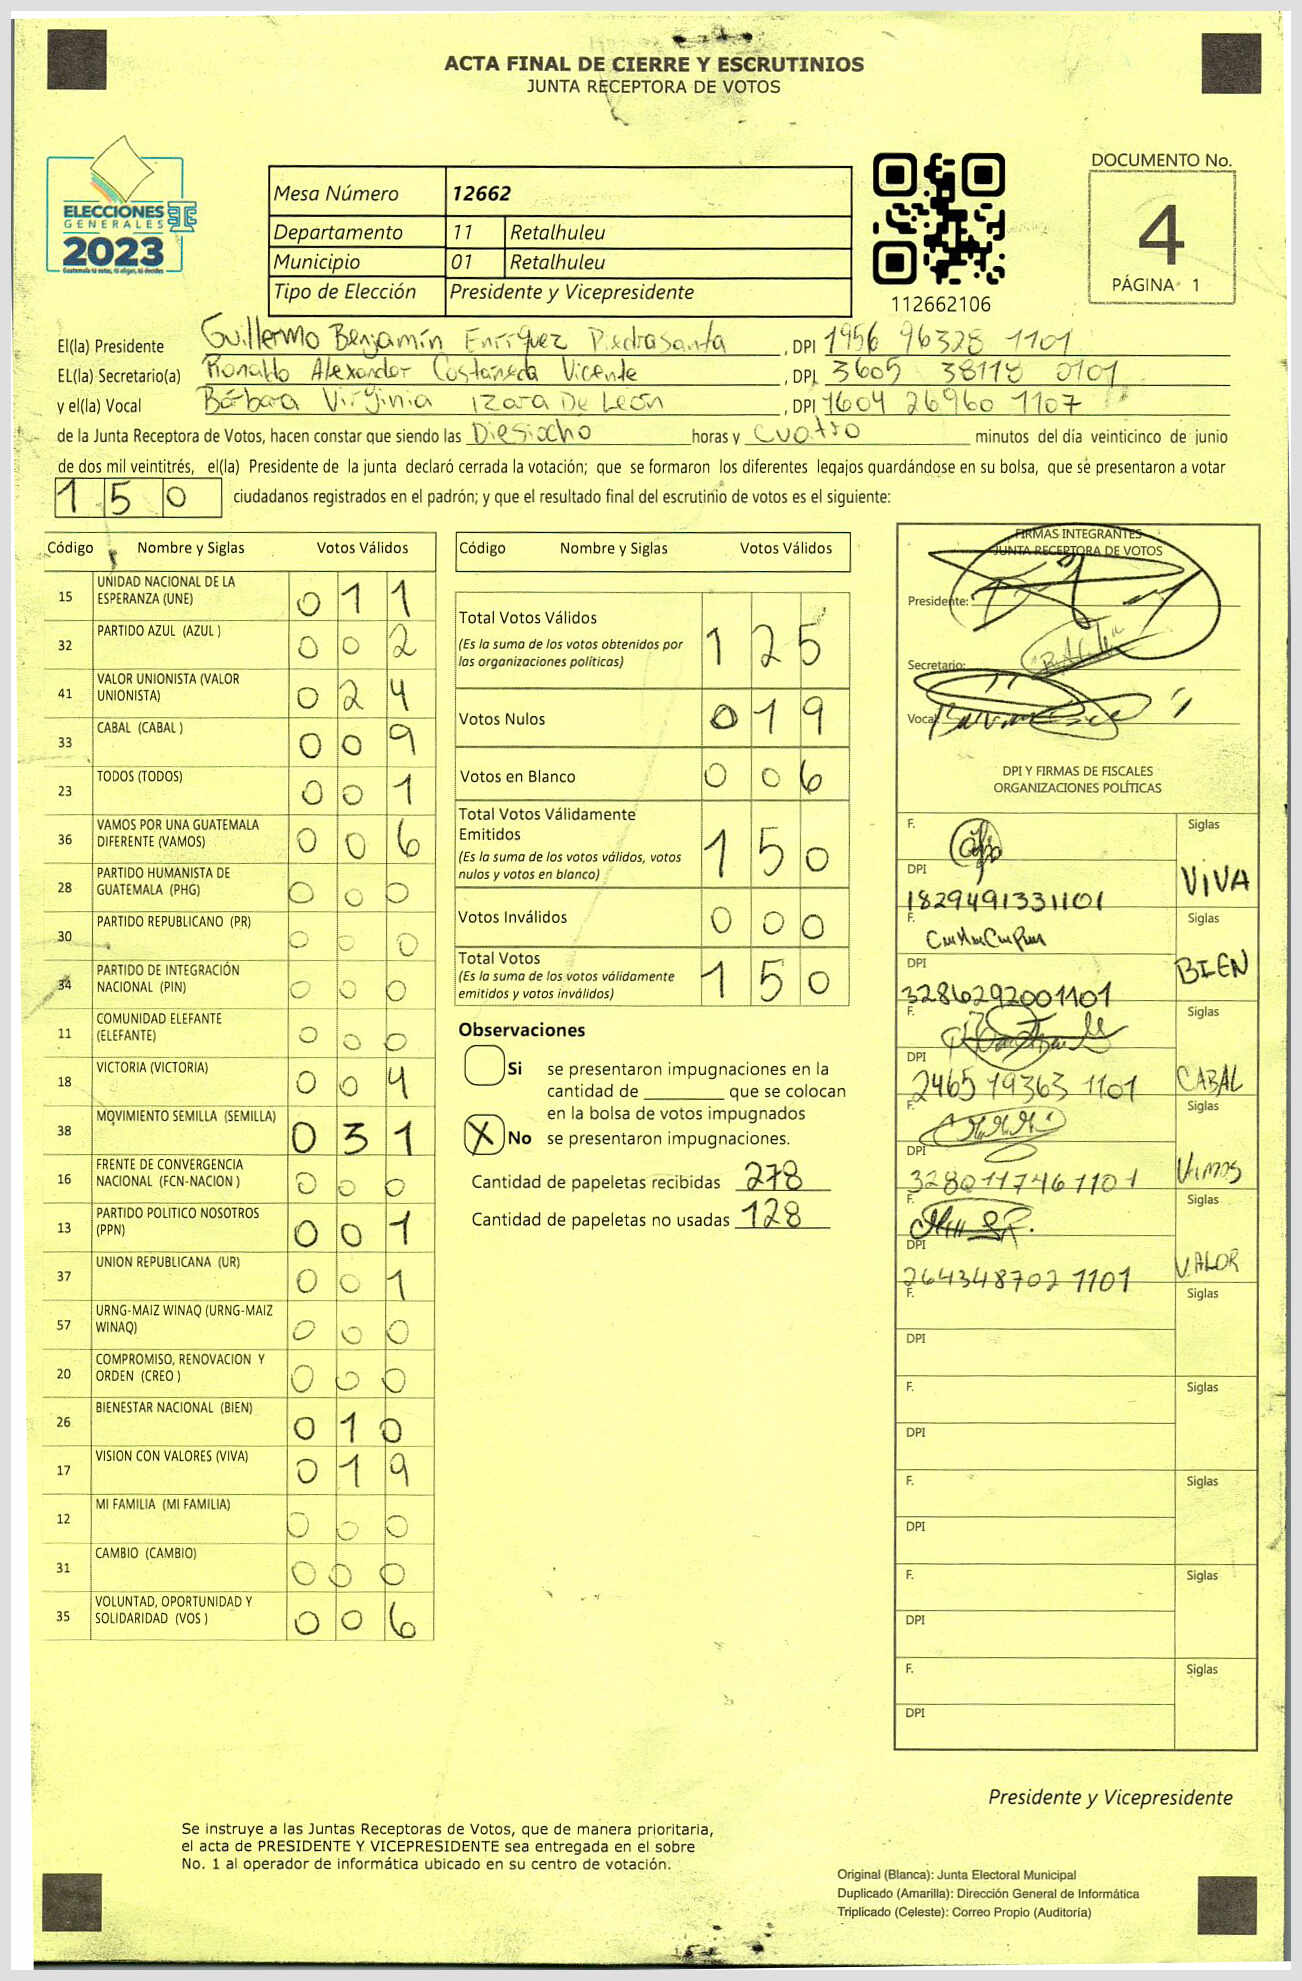 ACTA FINAL DE CIERRE Y ESCRUTINIOS
JUNTA RECEPTORA DE VOTOS
ELECCIONES
GENERALES
2023
Guatemala tú votas, tú eliges, tú decides
Mesa Número 12662
Departamento 11 Retalhuleu
Municipio 01 Retalhuleu
Tipo de Elección Presidente y Vicepresidente
112662106
DOCUMENTO No.
4
PÁGINA 1
El(la) Presidente Guillermo Benjamín Enríquez Piedrasanta, DPI 1956 96328 1101
EL(la) Secretario(a) Ronaldo Alexander Castañeda Vicente, DPI 3605 38118 0101
y el(la) Vocal Bárbara Virginia Izara De León, DPI 1604 26960 1107
de la Junta Receptora de Votos, hacen constar que siendo las Diesiocho horas y cuatro minutos del día veinticinco de junio
de dos mil veintitrés, el(la) Presidente de la junta declaró cerrada la votación; que se formaron los diferentes legajos guardándose en su bolsa, que se presentaron a votar
150 ciudadanos registrados en el padrón; y que el resultado final del escrutinio de votos es el siguiente:
Código Nombre y Siglas Votos Válidos
15 UNIDAD NACIONAL DE LA ESPERANZA (UNE) 0 1 1
32 PARTIDO AZUL (AZUL ) 0 0 2
41 VALOR UNIONISTA (VALOR UNIONISTA) 0 2 4
33 CABAL (CABAL ) 0 0 9
23 TODOS (TODOS) 0 0 1
36 VAMOS POR UNA GUATEMALA DIFERENTE (VAMOS) 0 0 6
28 PARTIDO HUMANISTA DE GUATEMALA (PHG) 0 0 0
30 PARTIDO REPUBLICANO (PR) 0 0 0
34 PARTIDO DE INTEGRACIÓN NACIONAL (PIN) 0 0 0
11 COMUNIDAD ELEFANTE (ELEFANTE) 0 0 0
18 VICTORIA (VICTORIA) 0 0 4
38 MOVIMIENTO SEMILLA (SEMILLA) 0 3 1
16 FRENTE DE CONVERGENCIA NACIONAL (FCN-NACION ) 0 0 0
13 PARTIDO POLITICO NOSOTROS (PPN) 0 0 1
37 UNION REPUBLICANA (UR) 0 0 1
57 URNG-MAIZ WINAQ (URNG-MAIZ WINAQ) 0 0 0
20 COMPROMISO, RENOVACION Y ORDEN (CREO ) 0 0 0
26 BIENESTAR NACIONAL (BIEN) 0 1 0
17 VISION CON VALORES (VIVA) 0 1 9
12 MI FAMILIA (MI FAMILIA) 0 0 0
31 CAMBIO (CAMBIO) 0 0 0
35 VOLUNTAD, OPORTUNIDAD Y SOLIDARIDAD (VOS ) 0 0 6
Código Nombre y Siglas Votos Válidos
Total Votos Válidos 1 2 5
(Es la suma de los votos obtenidos por
las organizaciones políticas)
Votos Nulos 0 1 9
Votos en Blanco 0 0 6
Total Votos Válidamente
Emitidos 1 5 0
(Es la suma de los votos válidos, votos
nulos y votos en blanco)
Votos Inválidos 0 0 0
Total Votos 1 5 0
(Es la suma de los votos válidamente
emitidos y votos inválidos)
Observaciones
Si se presentaron impugnaciones en la
cantidad de ________ que se colocan
en la bolsa de votos impugnados
X No se presentaron impugnaciones.
Cantidad de papeletas recibidas 278
Cantidad de papeletas no usadas 128
FIRMAS INTEGRANTES
JUNTA RECEPTORA DE VOTOS
Presidente:
Secretario:
Vocal:
DPI Y FIRMAS DE FISCALES
ORGANIZACIONES POLÍTICAS
F. Siglas
DPI VIVA
1829491331101
F. Siglas
DPI BIEN
3286292001101
F. Siglas
DPI CABAL
2465 19363 1101
F. Siglas
DPI Vamos
3280117461101
F. Siglas
DPI VALOR
264348702 1101
F. Siglas
DPI
F. Siglas
DPI
F. Siglas
DPI
F. Siglas
DPI
F. Siglas
DPI
Presidente y Vicepresidente
Se instruye a las Juntas Receptoras de Votos, que de manera prioritaria,
el acta de PRESIDENTE Y VICEPRESIDENTE sea entregada en el sobre
No. 1 al operador de informática ubicado en su centro de votación.
Original (Blanca): Junta Electoral Municipal
Duplicado (Amarilla): Dirección General de Informática
Triplicado (Celeste): Correo Propio (Auditoría)